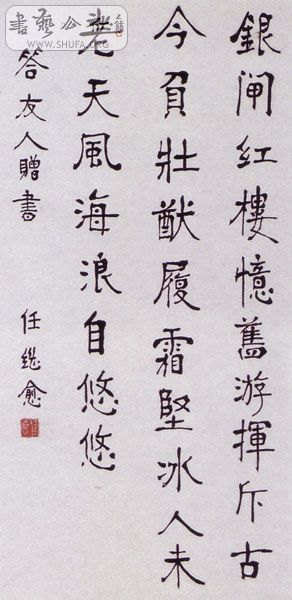 銀閘紅樓憶舊游揮斥古
今負壯猷履霜堅冰人未
老天風海浪自悠悠
答友人贈書
任继愈
書藝公社
WWW.SHUFA.ORG